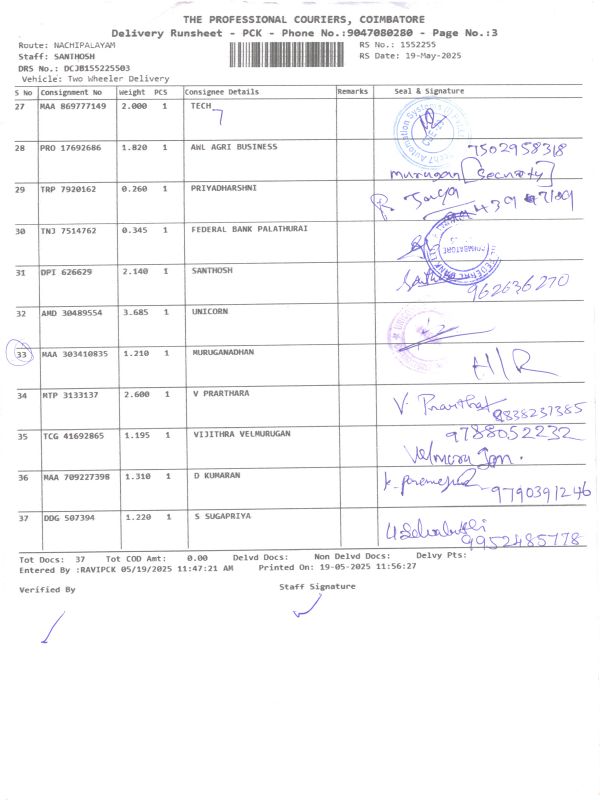 THE PROFESSIONAL COURIERS, COIMBATORE
Delivery Runsheet - PCK - Phone No.:9047080280 - Page No.:3
Route: NACHIPALAYAM RS No.: 1552255
Staff: SANTHOSH RS Date: 19-May-2025
DRS No.: DCJB155225503
Vehicle: Two Wheeler Delivery
S No Consignment No Weight PCS Consignee Details Remarks Seal & Signature
27 MAA 869777149 2.000 1 TECH
28 PRO 17692686 1.820 1 AWL AGRI BUSINESS 7502958318
murugan (Security)
29 TRP 7920162 0.260 1 PRIYADHARSHNI
30 TNJ 7514762 0.345 1 FEDERAL BANK PALATHURAI
31 DPI 626629 2.140 1 SANTHOSH
962636270
32 AMD 30489554 3.685 1 UNICORN
33 MAA 303410835 1.210 1 MURUGANADHAN
A11R
34 MTP 3133137 2.600 1 V PRARTHARA
V. Prarthat 9838237385
35 TCG 41692865 1.195 1 VIJITHRA VELMURUGAN 9788052232
36 MAA 709227398 1.310 1 D KUMARAN
9790391246
37 DDG 507394 1.220 1 S SUGAPRIYA
9952485778
Tot Docs: 37 Tot COD Amt: 0.00 Delvd Docs: Non Delvd Docs: Delvy Pts:
Entered By :RAVIPCK 05/19/2025 11:47:21 AM Printed On: 19-05-2025 11:56:27
Verified By Staff Signature